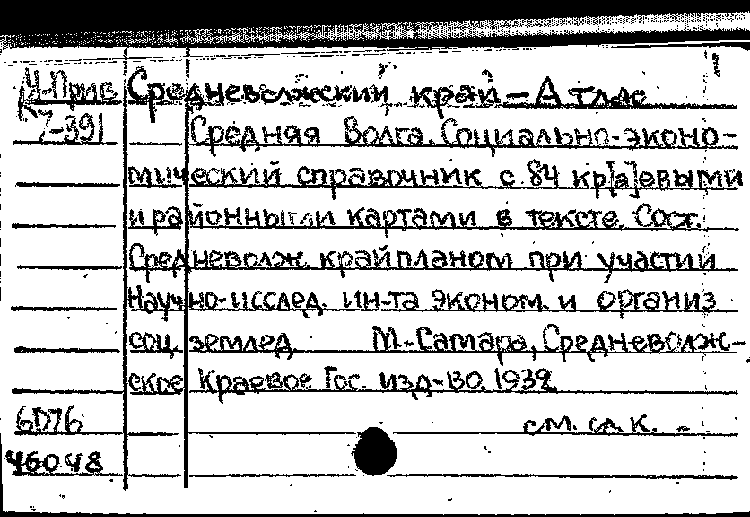 Средневолжский край – Атлас
7-391
Средняя Волга. Социально-эконо-
мический справочник с 84 кр[а]евыми
и районными картами в тексте. Сост.
Средневолж. крайпланом при участии
Научно-исслед. ин-та эконом. и организ
соц. землед. М.-Самара, Средневолж-
ское Краевое Гос. изд-во. 1932
6D76 см. сл. к.
46048